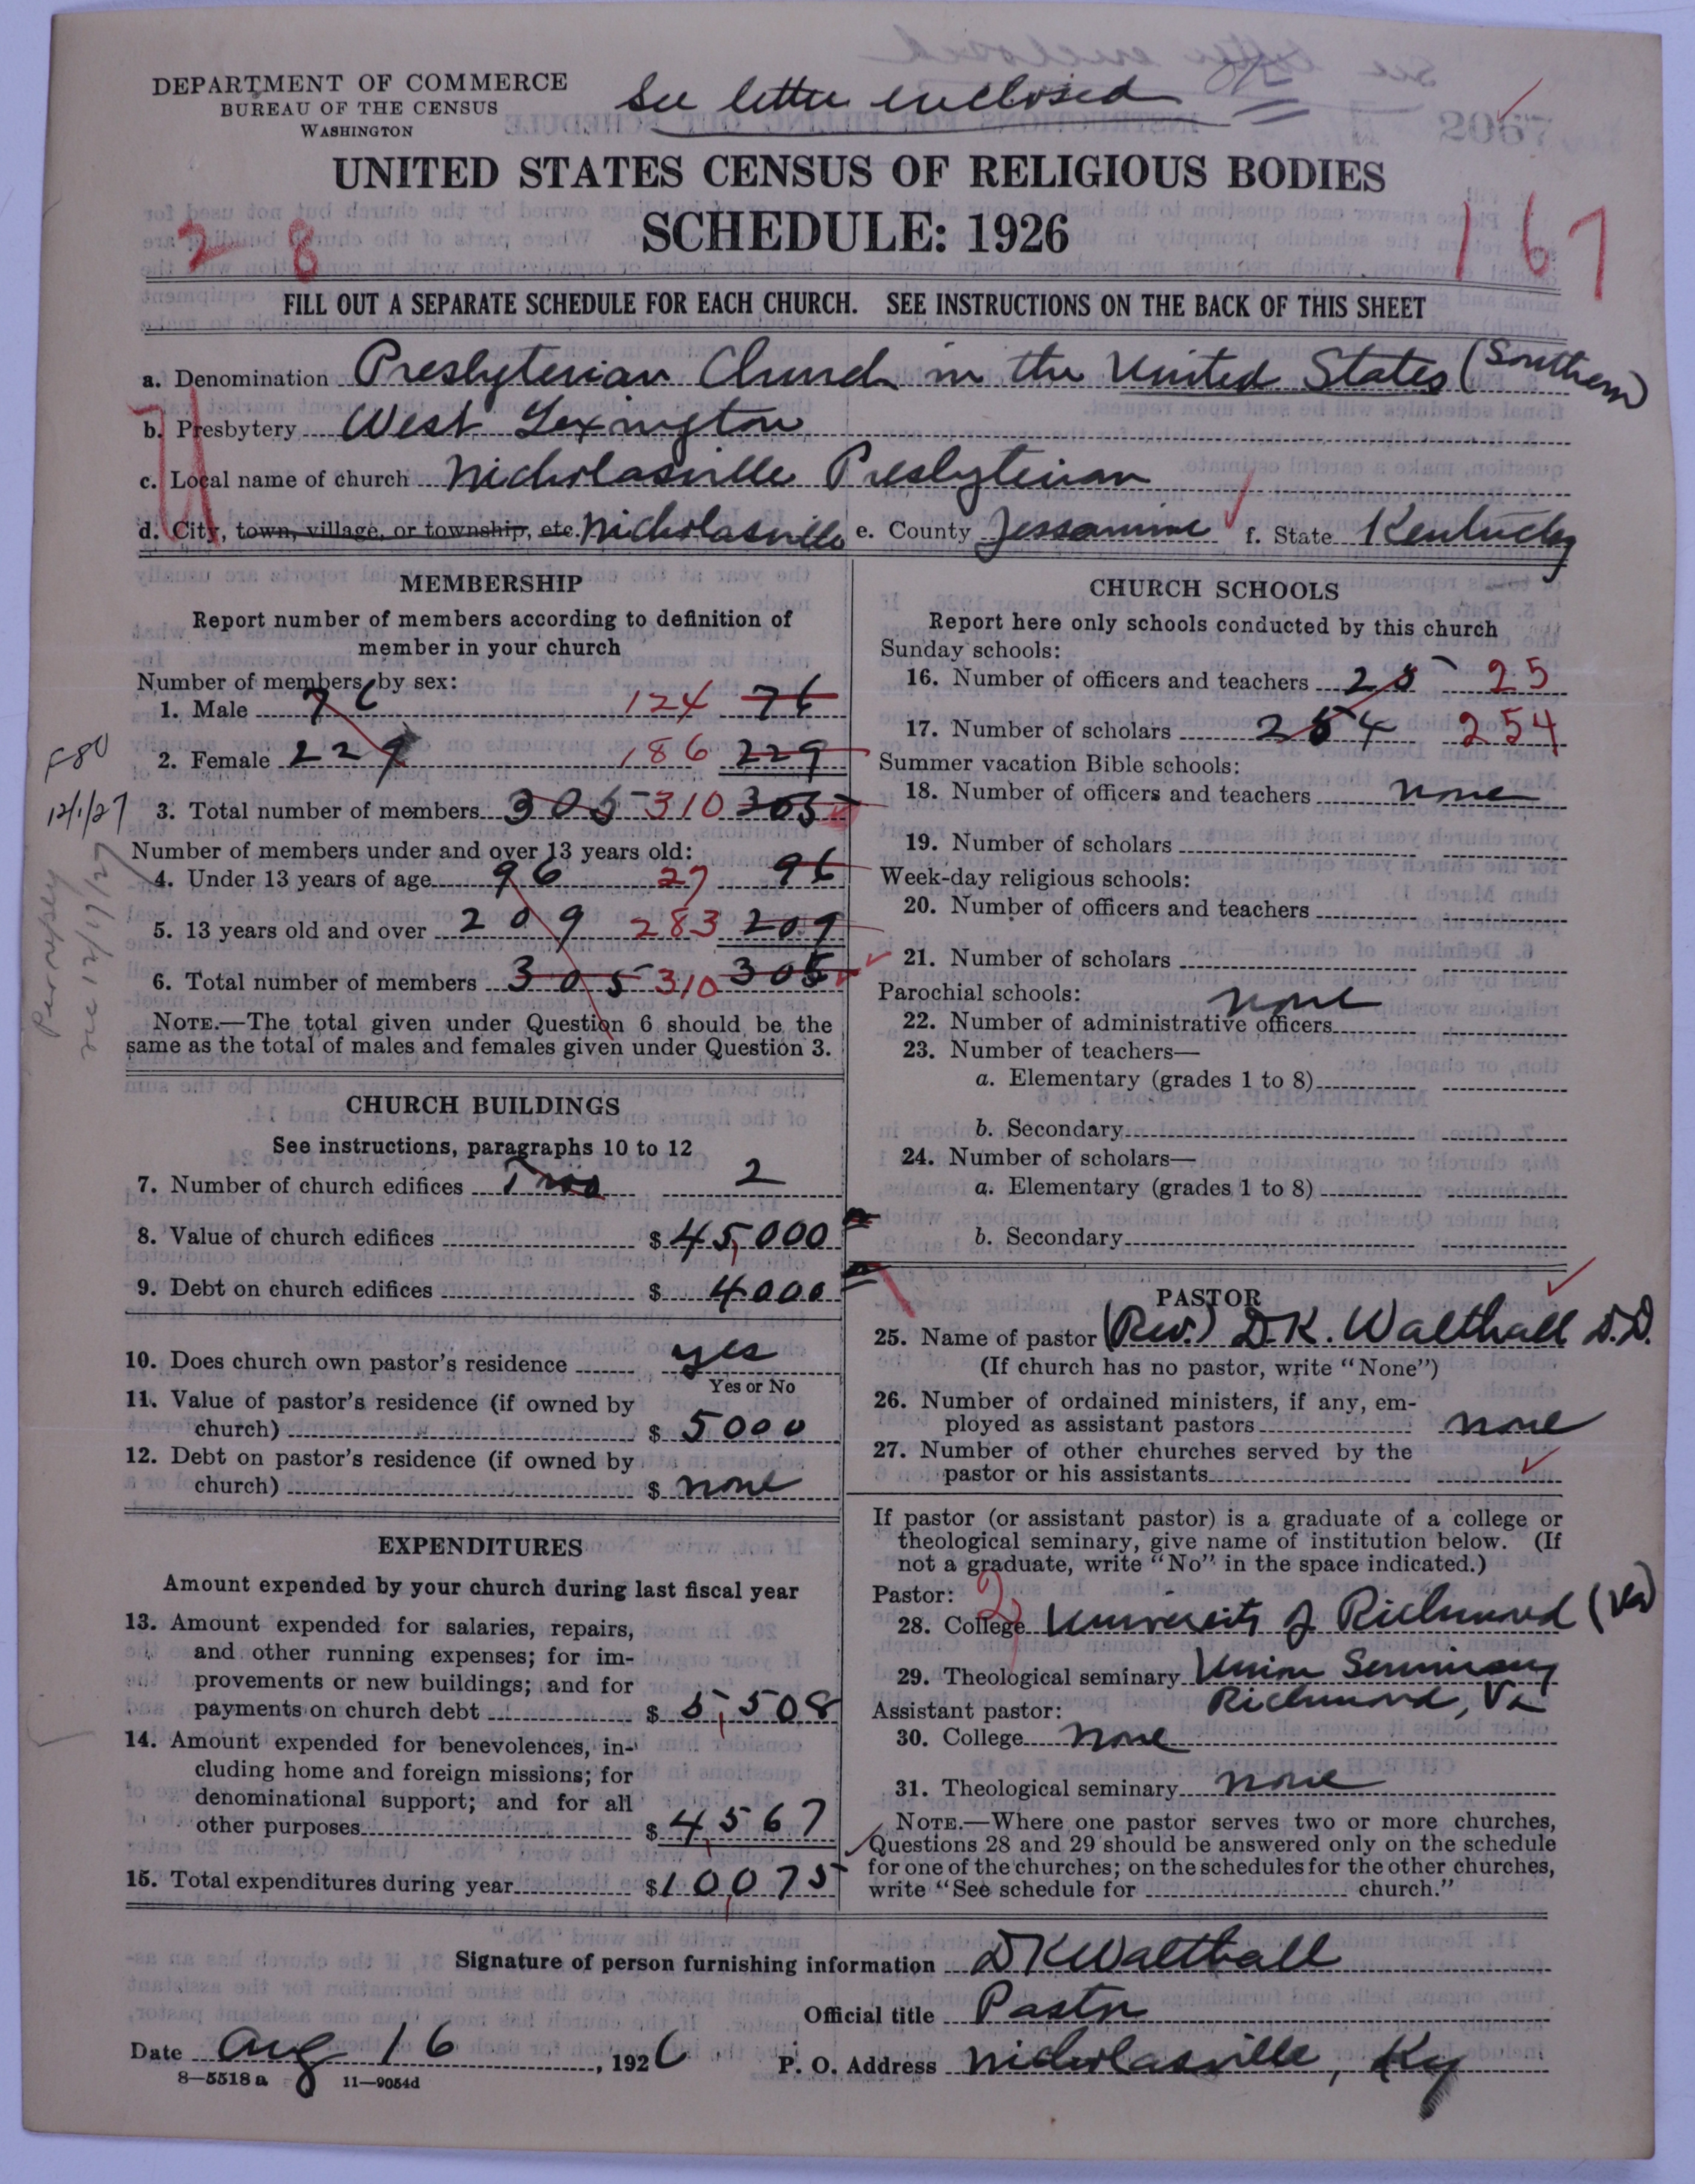 DEPARTMENT OF COMMERCE
BUREAU OF THE CENSUS
WASHINGTON
See letter enclosed
UNITED STATES CENSUS OF RELIGIOUS BODIES
SCHEDULE: 1926
2 8
167
FILL OUT A SEPARATE SCHEDULE FOR EACH CHURCH. SEE INSTRUCTIONS ON THE BACK OF THIS SHEET
a. Denomination Presbyterian Church in the United States (Southern)
b. Presbytery West Lexington
c. Local name of church Nicholasville Presbyterian
d. City, town, village, or township, etc. Nicholasville e. County Jessamine f. State Kentucky
MEMBERSHIP
Report number of members according to definition of
member in your church
Number of members by sex:
1. Male 76 124 76
2. Female 229 186 229
3. Total number of members 305 310 305
Number of members under and over 13 years old:
4. Under 13 years of age 96 27 96
5. 13 years old and over 209 283 209
6. Total number of members 305 310 305
NOTE.—The total given under Question 6 should be the
same as the total of males and females given under Question 3.
12/1/27
CHURCH BUILDINGS
See instructions, paragraphs 10 to 12
7. Number of church edifices Two 2
8. Value of church edifices $ 45,000
9. Debt on church edifices $ 4000
10. Does church own pastor's residence yes
Yes or No
11. Value of pastor's residence (if owned by
church) $ 5000
12. Debt on pastor's residence (if owned by
church) $ none
EXPENDITURES
Amount expended by your church during last fiscal year
13. Amount expended for salaries, repairs,
and other running expenses; for im-
provements or new buildings; and for
payments on church debt $ 5,508
14. Amount expended for benevolences, in-
cluding home and foreign missions; for
denominational support; and for all
other purposes $ 4,567
15. Total expenditures during year $10,075
CHURCH SCHOOLS
Report here only schools conducted by this church
Sunday schools:
16. Number of officers and teachers 25 25
17. Number of scholars 254 254
Summer vacation Bible schools:
18. Number of officers and teachers none
19. Number of scholars
Week-day religious schools:
20. Number of officers and teachers
21. Number of scholars
Parochial schools: none
22. Number of administrative officers
23. Number of teachers—
a. Elementary (grades 1 to 8)
b. Secondary
24. Number of scholars—
a. Elementary (grades 1 to 8)
b. Secondary
PASTOR
25. Name of pastor (Rev.) D.K. Walthall D.D.
(If church has no pastor, write "None")
26. Number of ordained ministers, if any, em-
ployed as assistant pastors none
27. Number of other churches served by the
pastor or his assistants
If pastor (or assistant pastor) is a graduate of a college or
theological seminary, give name of institution below. (If
not a graduate, write "No" in the space indicated.)
Pastor: 2
28. College University of Richmond (Va)
29. Theological seminary Union Seminary
Richmond, Va
Assistant pastor:
30. College none
31. Theological seminary none
NOTE.—Where one pastor serves two or more churches,
Questions 28 and 29 should be answered only on the schedule
for one of the churches; on the schedules for the other churches,
write "See schedule for church."
Signature of person furnishing information DK Walthall
Official title Pastor
Date Aug 16, 1926
P. O. Address Nicholasville, Ky
8—5518 a 11—9054d